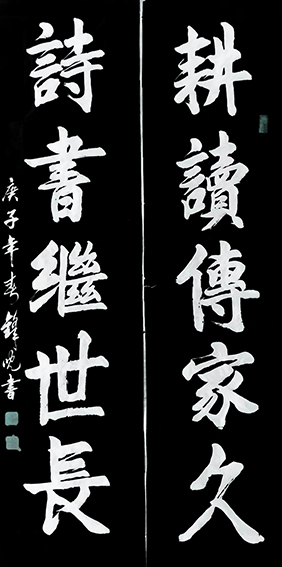 耕讀傳家久
詩書繼世長
庚子年春鐸悦書